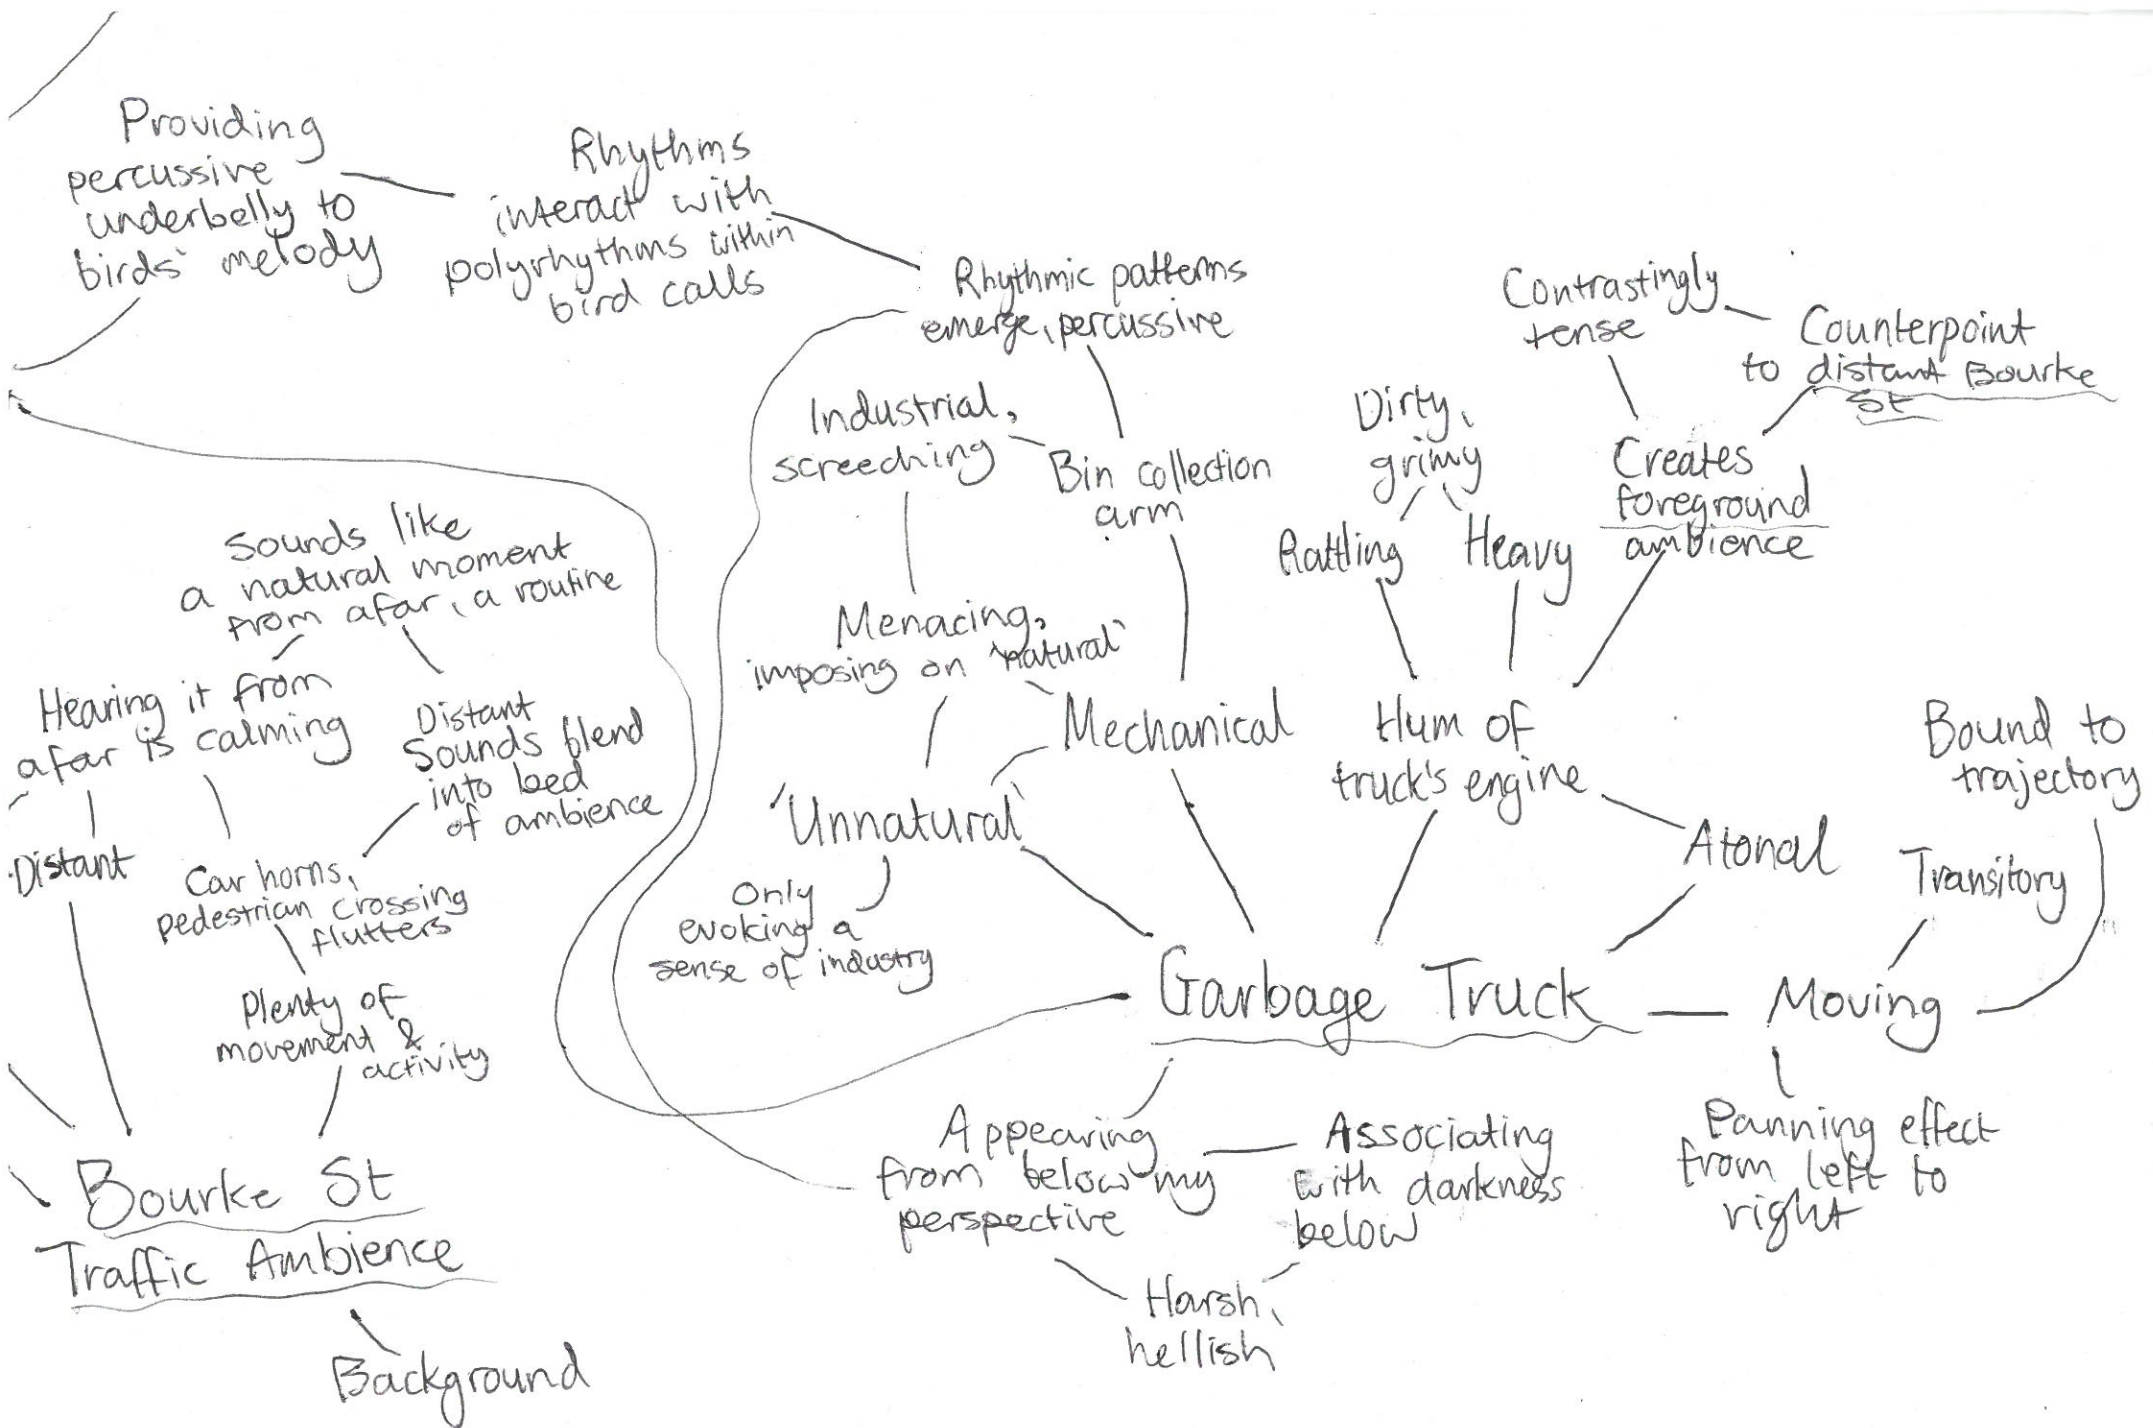 Providing
percussive
underbelly to
birds' melody
Rhythms
interact with
polyrhythms within
bird calls
Rhythmic patterns
emerge, percussive
Contrastingly
tense
Counterpoint
to distant Bourke
St
Industrial,
screeching
Bin collection
arm
Dirty,
grimy
Creates
foreground
ambience
Rattling
Heavy
Sounds like
a natural moment
from afar, a routine
Menacing,
imposing on 'natural'
Hearing it from
afar is calming
Distant
Sounds blend
into bed
of ambience
Mechanical
Hum of
truck's engine
Bound to
trajectory
'Unnatural'
Atonal
Transitory
Distant
Car horns,
pedestrian crossing
flutters
Only
evoking a
sense of industry
Plenty of
movement &
activity
Garbage Truck
Moving
Appearing
from below my
perspective
Associating
with darkness
below
Panning effect
from left to
right
Bourke St
Traffic Ambience
Harsh,
hellish
Background